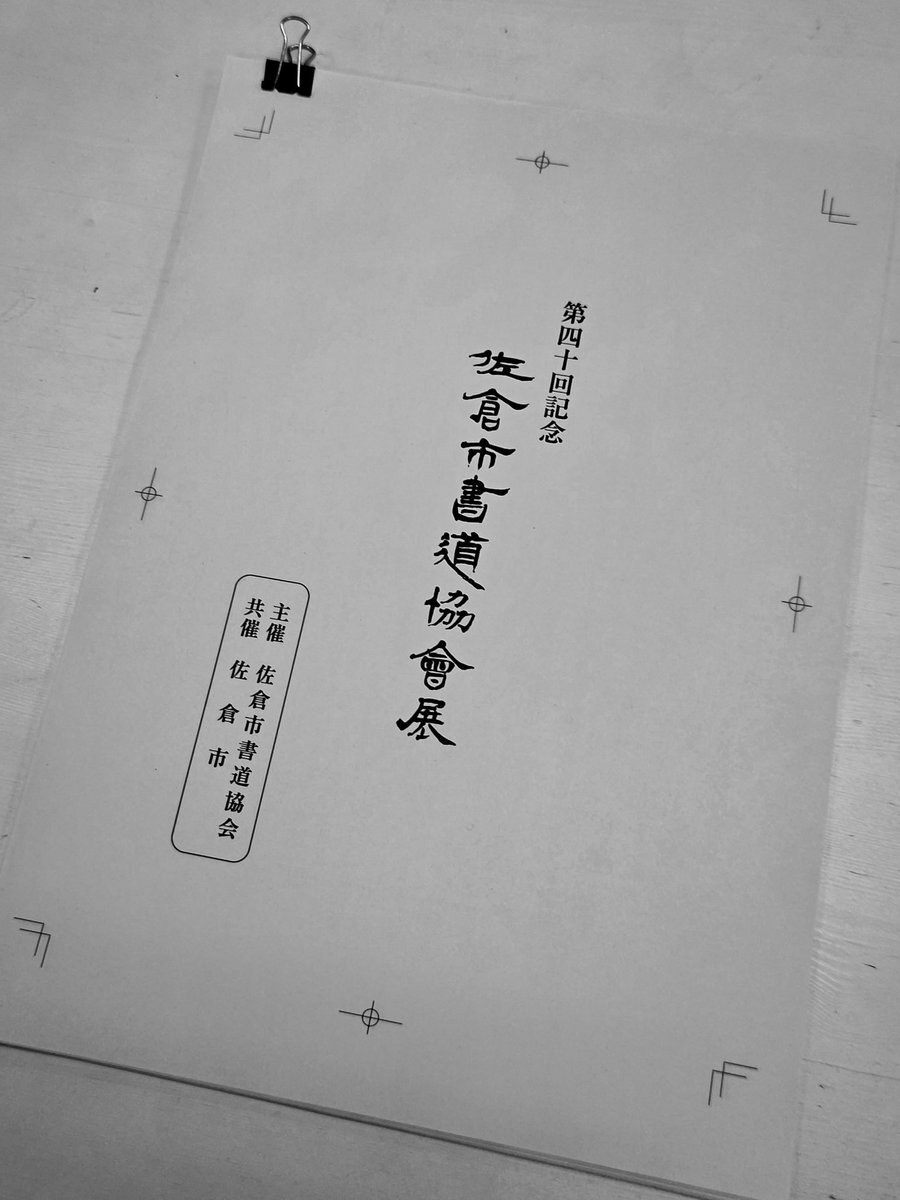 第四十回記念
佐倉市書道協會展
主催 佐倉市書道協会
共催 佐倉市